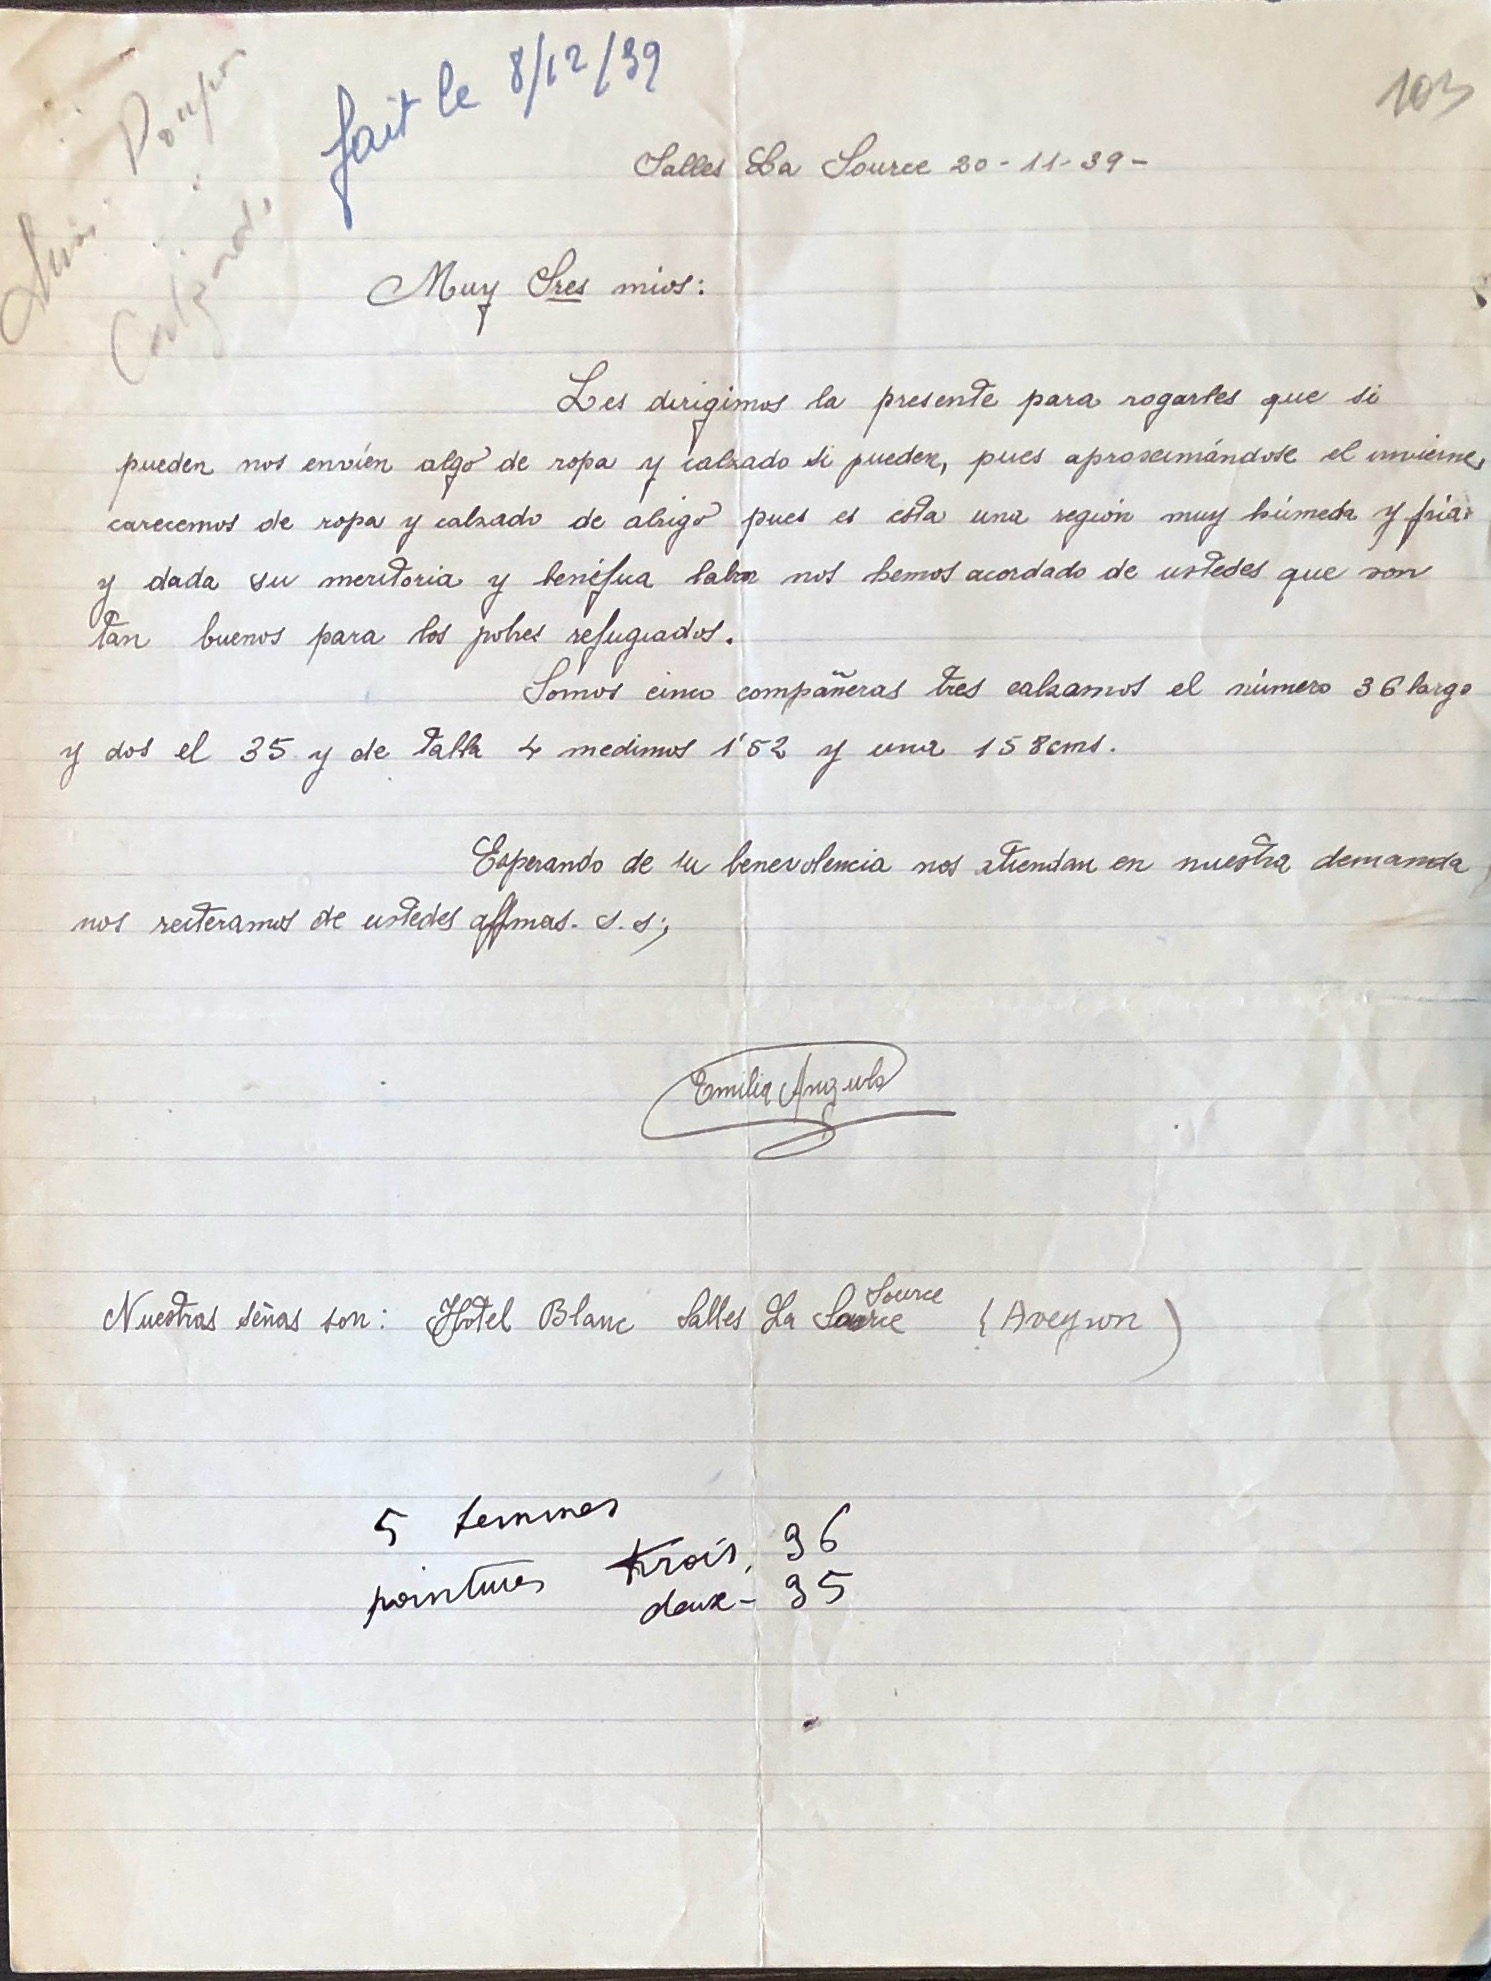 fait le 8/12/39
103
Salles La Source 20-11-39-
Muy Sres mios:
Les dirigimos la presente para rogarles que si
pueden nos envíen algo de ropa y calzado si pueden, pues aproximándose el invierno,
carecemos de ropa y calzado de abrigo pues es esta una región muy húmeda y fría.
y dada su meritoria y benéfica labor nos hemos acordado de ustedes que son
tan buenos para los pobres refugiados.
Somos cinco compañeras tres calzamos el número 36 largo
y dos el 35 y de talla 4 medimos 1'52 y una 158 cms.
Esperando de su benevolencia nos atiendan en nuestra demanda,
nos reiteramos de ustedes affmas. s.s;,
Emilia Angulo
Nuestras señas son: Hotel Blanc Salles La Source Source (Aveyron)
5 femmes
pointures trois, 36
deux - 35